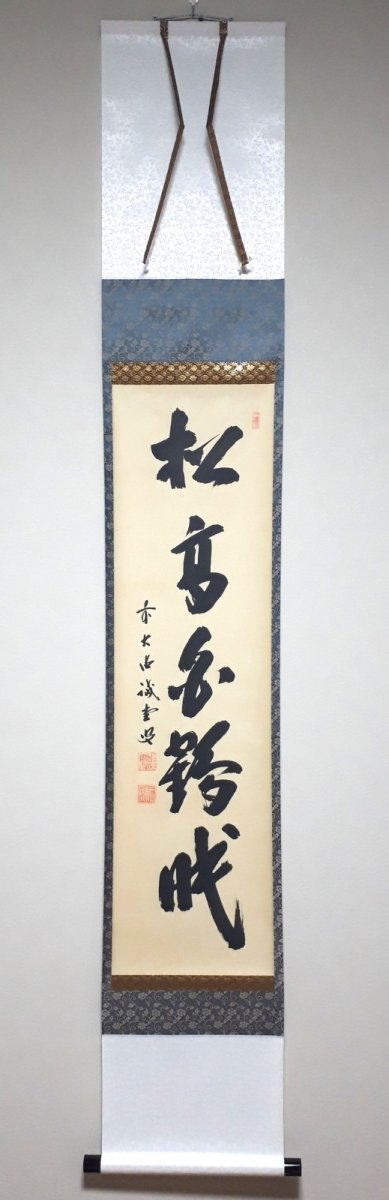 松高白鶴眠
前大徳誡堂書